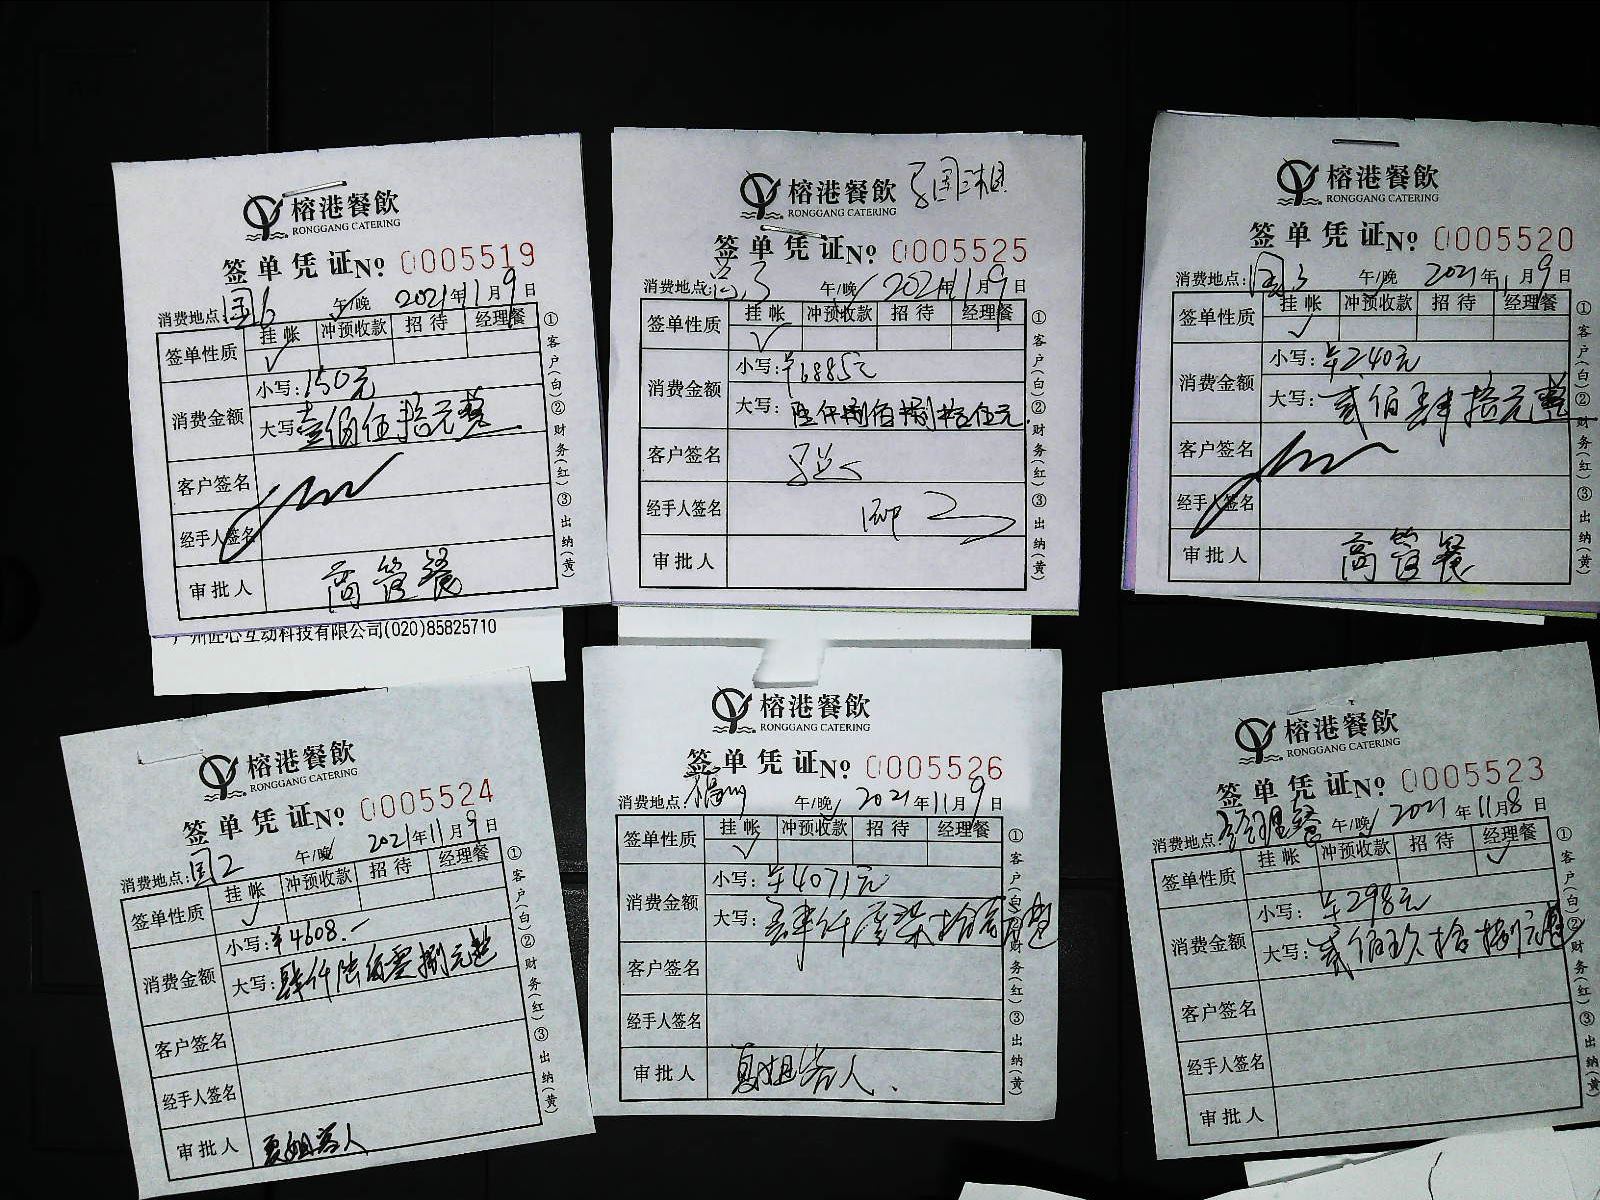 榕港餐飲
RONGGANG CATERING
签单凭证 No 0005519
消费地点:国6 午/晚 2021年11月9日
签单性质 挂帐 冲预收款 招待 经理餐
✓
消费金额 小写:150元
大写:壹佰伍拾元整
客户签名
经手人签名
审批人 高管餐
①客户(白)②财务(红)③出纳(黄)
广州匠心互动科技有限公司(020)85825710
榕港餐飲
RONGGANG CATERING
签单凭证 No 0005525
消费地点: 午/晚 2021年11月9日
签单性质 挂帐 冲预收款 招待 经理餐
✓
消费金额 小写:¥6885元
大写:陆仟捌佰捌拾伍元
客户签名
经手人签名
审批人
①客户(白)②财务(红)③出纳(黄)
榕港餐飲
RONGGANG CATERING
签单凭证 No 0005520
消费地点:国3 午/晚 2021年11月9日
签单性质 挂帐 冲预收款 招待 经理餐
✓
消费金额 小写:¥240元
大写:贰佰肆拾元整
客户签名
经手人签名
审批人 高管餐
①客户(白)②财务(红)③出纳(黄)
榕港餐飲
RONGGANG CATERING
签单凭证 No 0005524
消费地点:国2 午/晚 2021年11月9日
签单性质 挂帐 冲预收款 招待 经理餐
✓
消费金额 小写:¥4608.-
大写:肆仟陆佰零捌元整
客户签名
经手人签名
审批人 夏姐客人
①客户(白)②财务(红)③出纳(黄)
榕港餐飲
RONGGANG CATERING
签单凭证 No 0005526
消费地点:福州 午/晚 2021年11月9日
签单性质 挂帐 冲预收款 招待 经理餐
✓
消费金额 小写:¥4071元
大写:肆仟零柒拾壹元整
客户签名
经手人签名
审批人 夏姐客人.
①客户(白)②财务(红)③出纳(黄)
榕港餐飲
RONGGANG CATERING
签单凭证 No 0005523
消费地点:经理餐 午/晚 2021年11月8日
签单性质 挂帐 冲预收款 招待 经理餐
✓
消费金额 小写:¥298元
大写:贰佰玖拾捌元整
客户签名
经手人签名
审批人
①客户(白)②财务(红)③出纳(黄)